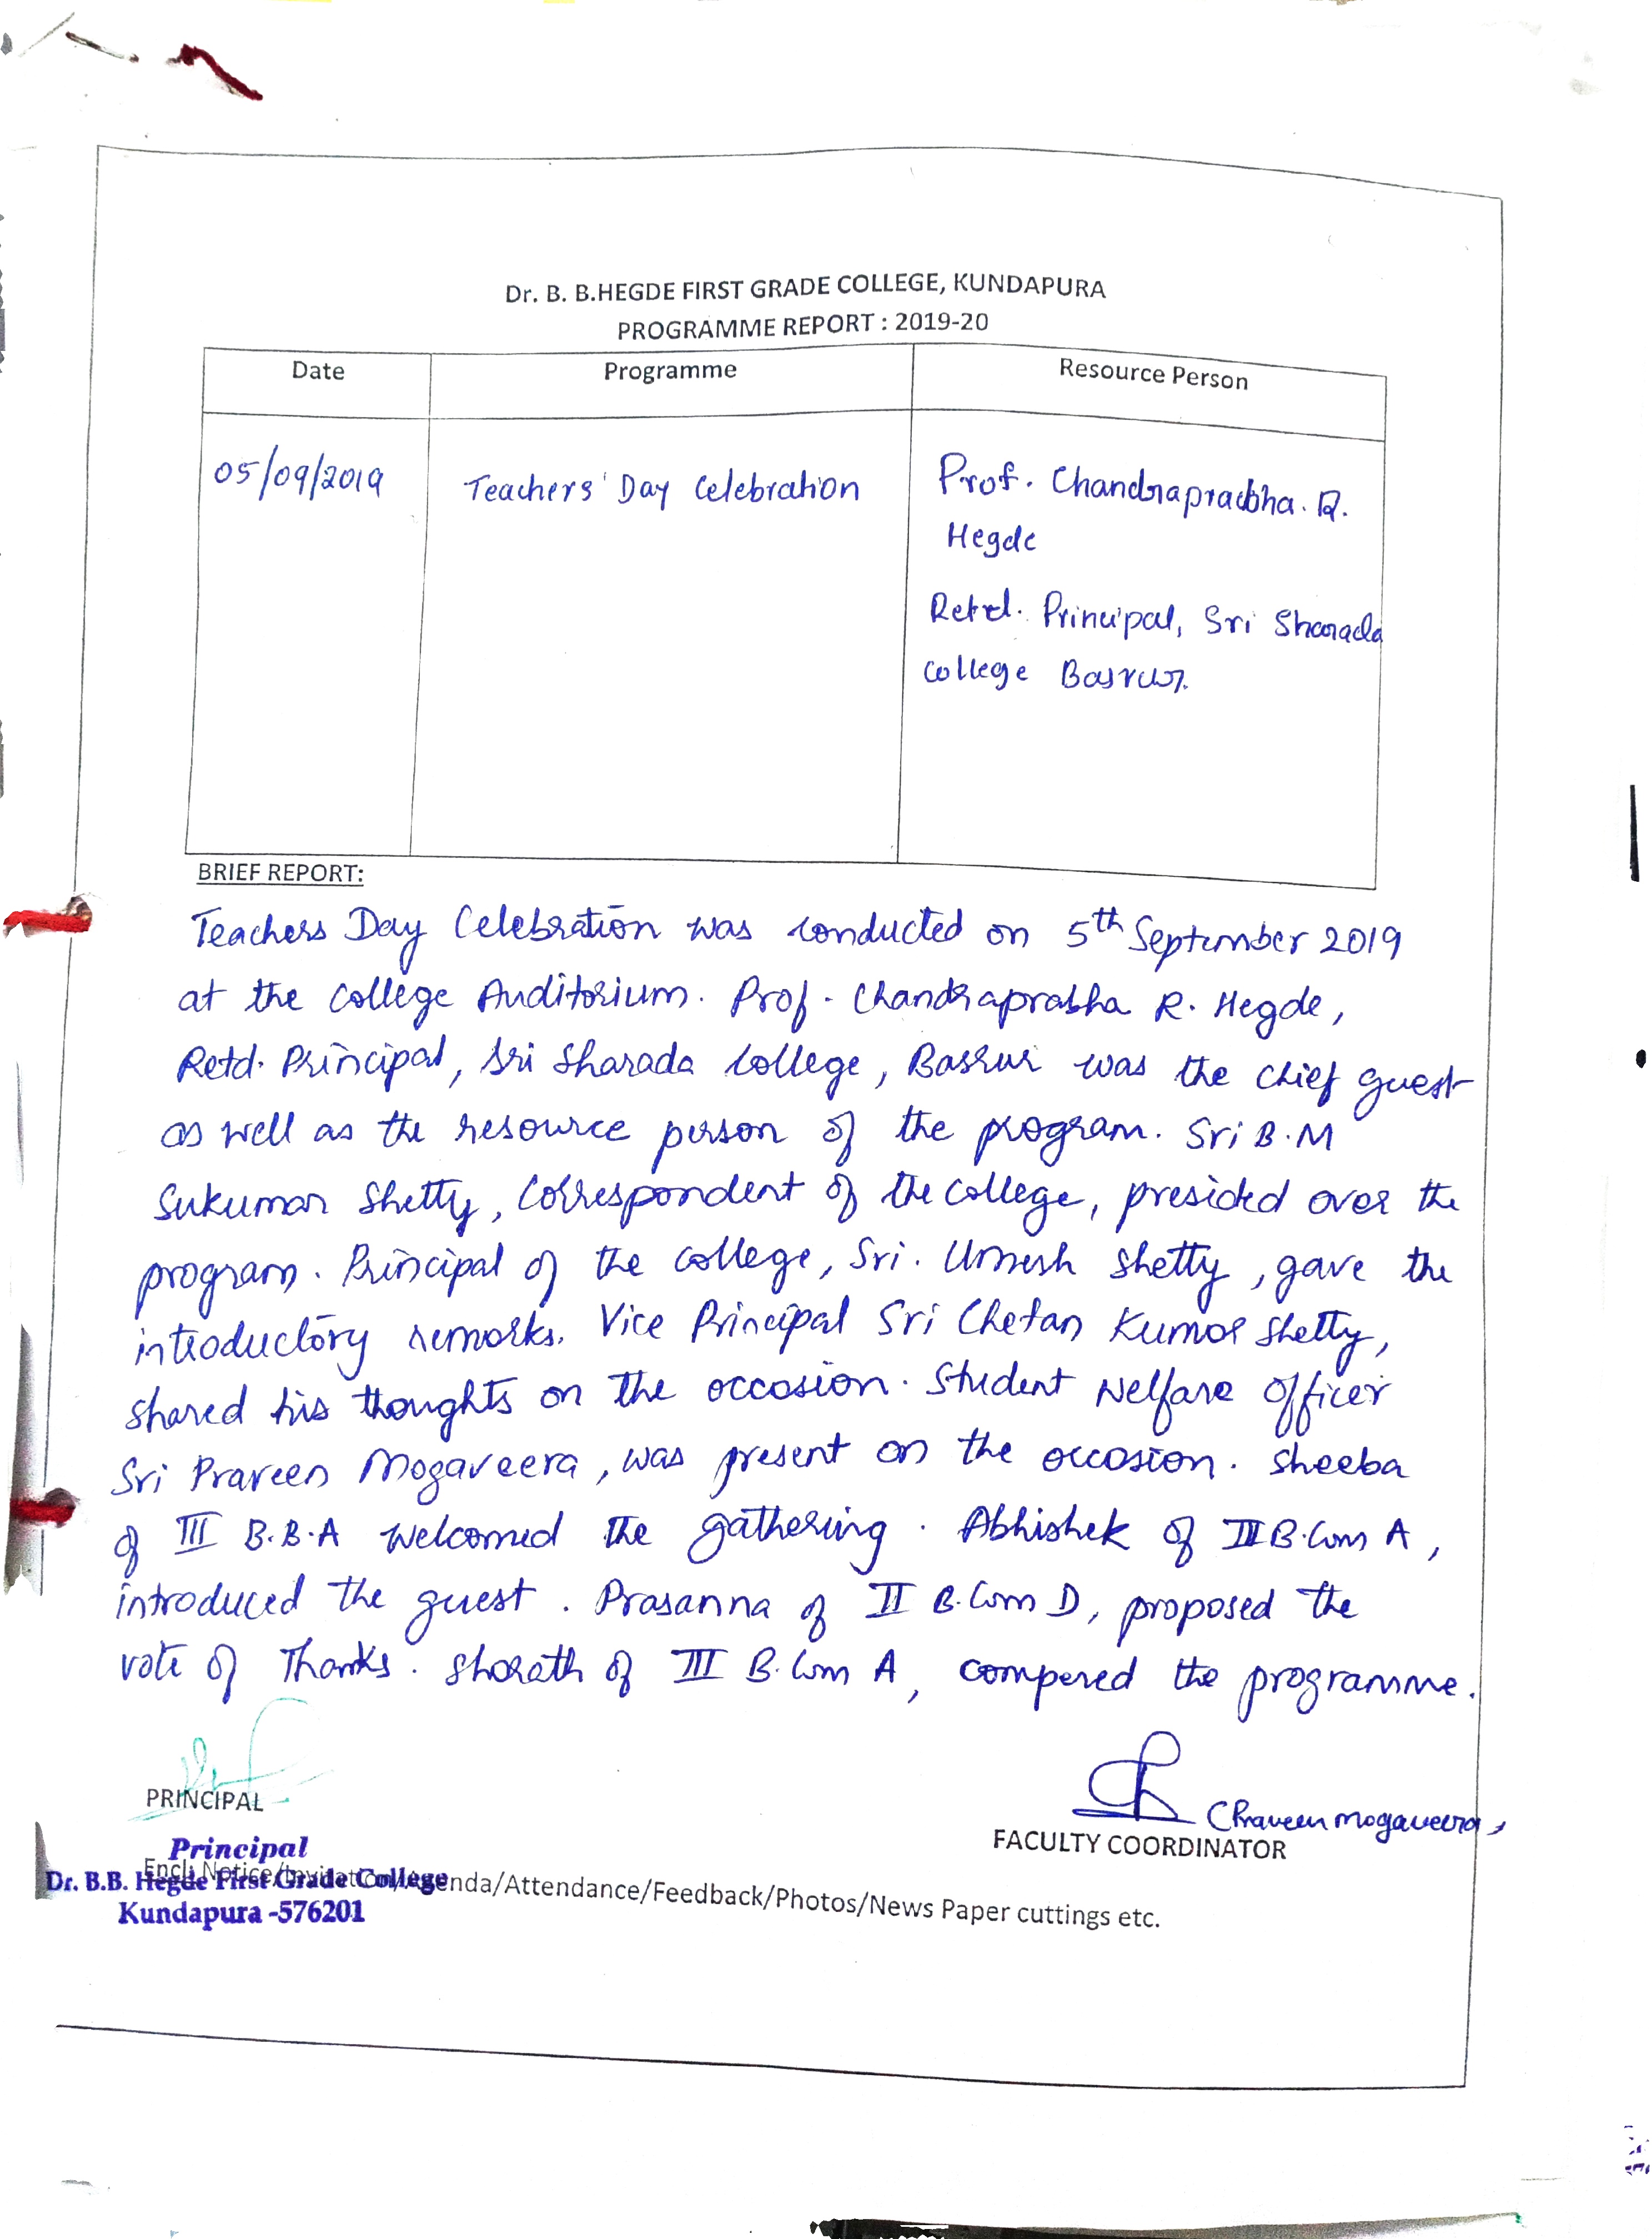 Dr. B. B.HEGDE FIRST GRADE COLLEGE, KUNDAPURA
PROGRAMME REPORT : 2019-20
Date Programme Resource Person
05/09/2019 Teachers' Day Celebration Prof. Chandraprabha. R.
Hegde
Retd. Principal, Sri Sharada
College Basrur.
BRIEF REPORT:
Teachers Day Celebration was conducted on 5th September 2019
at the College Auditorium. Prof. Chandraprabha R. Hegde,
Retd. Principal, Sri Sharada College, Basrur was the chief guest
as well as the resource person of the program. Sri B.M
Sukumar Shetty, Correspondent of the College, presided over the
program. Principal of the college, Sri. Umesh Shetty, gave the
introductory remarks. Vice Principal Sri Chetan Kumar Shetty,
shared his thoughts on the occasion. Student Welfare Officer
Sri Praveen Mogaveera, was present on the occasion. Sheeba
of III B.B.A welcomed the gathering. Abhishek of III B.Com A,
introduced the guest. Prasanna of II B.Com D, proposed the
vote of Thanks. Sharath of III B.Com A, compered the programme.
PRINCIPAL
(Praveen Mogaveera,
FACULTY COORDINATOR
Principal
Dr. B.B. Hegde First Grade College
Kundapura -576201
Encl: Notice/Invitation/Agenda/Attendance/Feedback/Photos/News Paper cuttings etc.